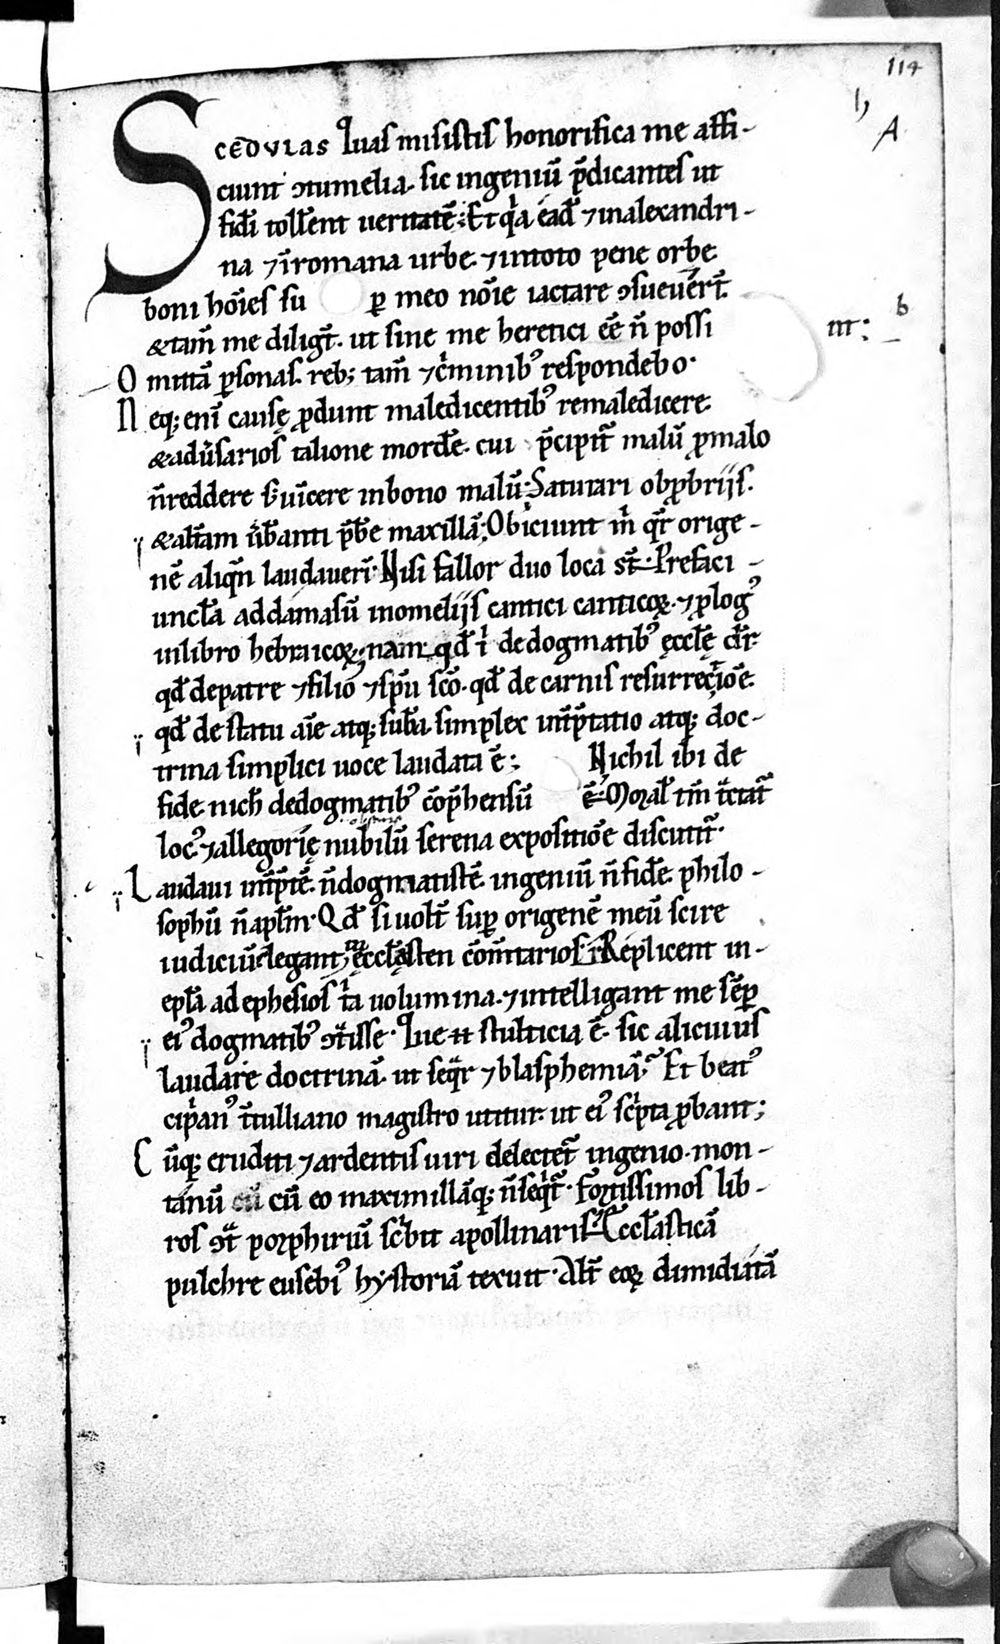 114
h
A
SCEDVLAS quas misistis honorifica me affi-
ciunt ↄtumelia. sic ingeniū p̄dicantes ut
fidēi toll̄ent ueritatē. Et qͥa ead̄ ⁊ in alexandri-
na ⁊ ī romana urbe. ⁊ in toto pene orbe
boni hoīes su ꝑ meo noīe iactare ↄsueuer̄t.
& tam̄ me diligt̄. ut sine me heretici eē n̄ possi
nt: b
O mittā ꝑsonas. reb; tam̄ ⁊ cͥminibꝰ respondebo.
N eq; eni᷆ causę ꝓdunt maledicentibꝰ remaledicere.
& adu͛sarios talione mord̄e. cui p̄cipit᷑ malū ꝓ malo
n̄ reddere s; uīcere in bono malū. Saturari obꝓbriis.
& alt͛am u͛b̄anti p̄b̄e maxillā; Obiciunt m̄ qr̄ orige-
nē aliqn̄ laudauerī. Nisi fallor duo loca st̄. Prefaci
uncl̄a ad damasū in omeliis cantici canticoꝝ. ⁊ ꝓlogꝰ
in libro hebraicoꝝ nam qd̄ ī de dogmatibꝰ ęccl̄ę dr̄.
qd̄ de patre ⁊ filio ⁊ sp̄u sc̄o. qd̄ de carnis resurrectiōe.
qd̄ de statu aīe atq; sub̄a. simplex int͛p̄tatio atq; doc-
trina simplici uoce laudata ē; Nichil ibi de
fide nich̄ de dogmatibꝰ cōp̄hensū ē. Moral̄ tm̄ tͣctat᷑
locꝰ ⁊ allegorię nubilū serena expositiōe discutit᷑.
L audaui int͛p̄tē. n̄ dogmatistē. ingeniū n̄ fidē. philo-
sophū n̄ apl̄m. Qd̄ si uolt̄ suꝑ origenē meū scire
iudiciū. legant in ęccl̄ęsten cōm̄tarios. Replicent in
epl̄a ad ephesios tͥa uolumina. ⁊ intelligant me sēꝑ
eiꝰ dogmatibꝰ ↄtͣisse. Que stulticia ē. sic alicuius
laudare doctrinā. ut seqͣr ⁊ blasphemiā. Et beatꝰ
cipͥanꝰ t͛tulliano magistro utitur. ut eiꝰ sc̄pta ꝓbant;
C ūq; eruditi ⁊ ardentis uiri delectet᷑ ingenio. mon-
tanū cū cū eo maximillāq; n̄ seqͥt᷑. Fortissimos lib-
ros ↄtͣ porphiriū sc̄bit apollinaris. Eccl̄asticā
pulchre eusebiꝰ hystoriā texuit. Alt͛ eoꝝ dimidiatā